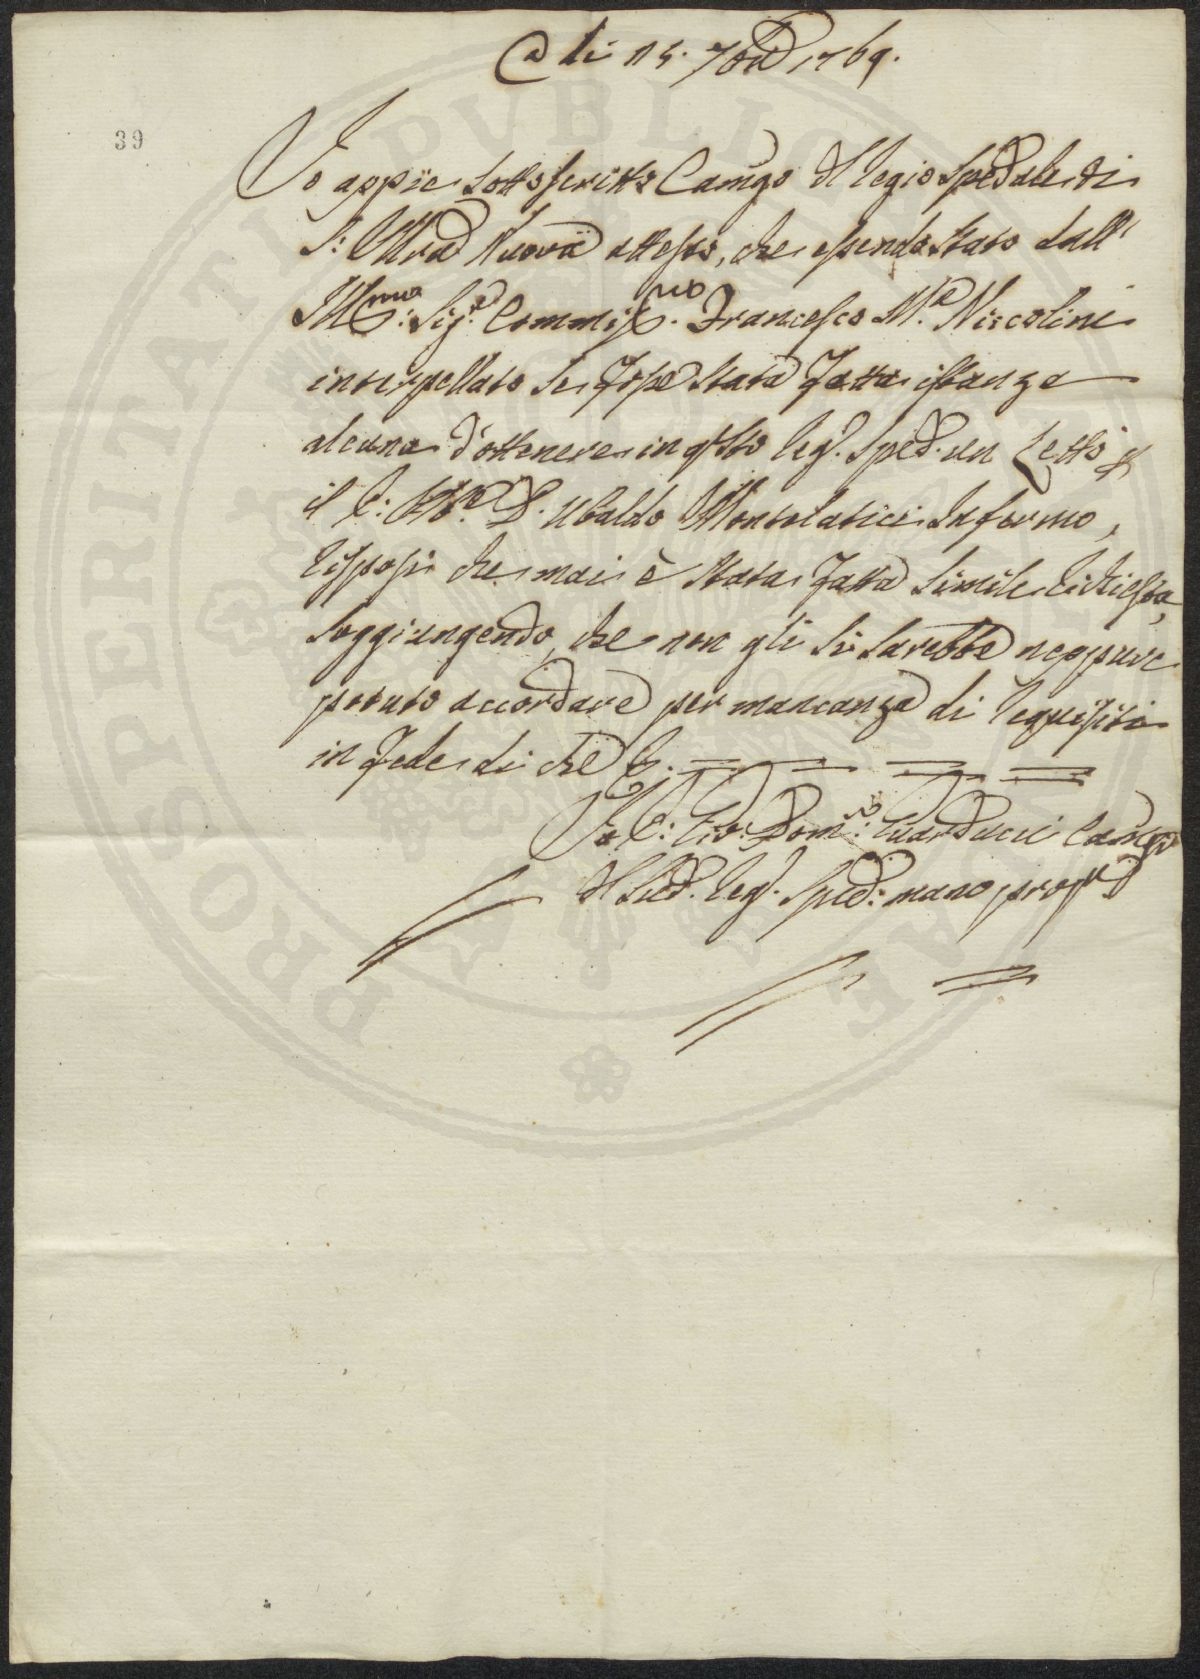 A di 15. 7bre 1769.
39
Io appie sottoscritto Camgo del Regio Spedale di
S: Mria Nuova attesto, che essendo stato dall'
Illmo: Sigre Commisso. Francesco Ma. Niccolini
interpellato se fosse stata fatta istanza
alcuna d'ottenere in qsto Reg. Sped. un Letto p
il P: Abe. D. Ubaldo Montelatici Infermo,
risposi che mai è stata fatta simile richiesta,
soggiungendo, che non gli si sarebbe neppure
potuto accordare per mancanza di requisiti
in fede di che &.
Io P: Gio: Domco: Guarducci Camgo
del sud. Reg. Sped: mano propa
PROSPERITATI PUBLICAE